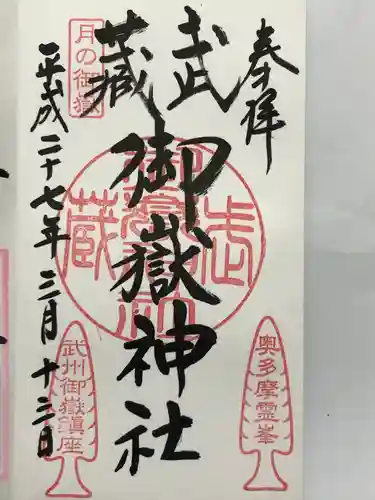 奉拝
武蔵
御嶽神社
平成二十七年三月十三日
月の御嶽
奥多摩霊峯
武州御嶽鎮座